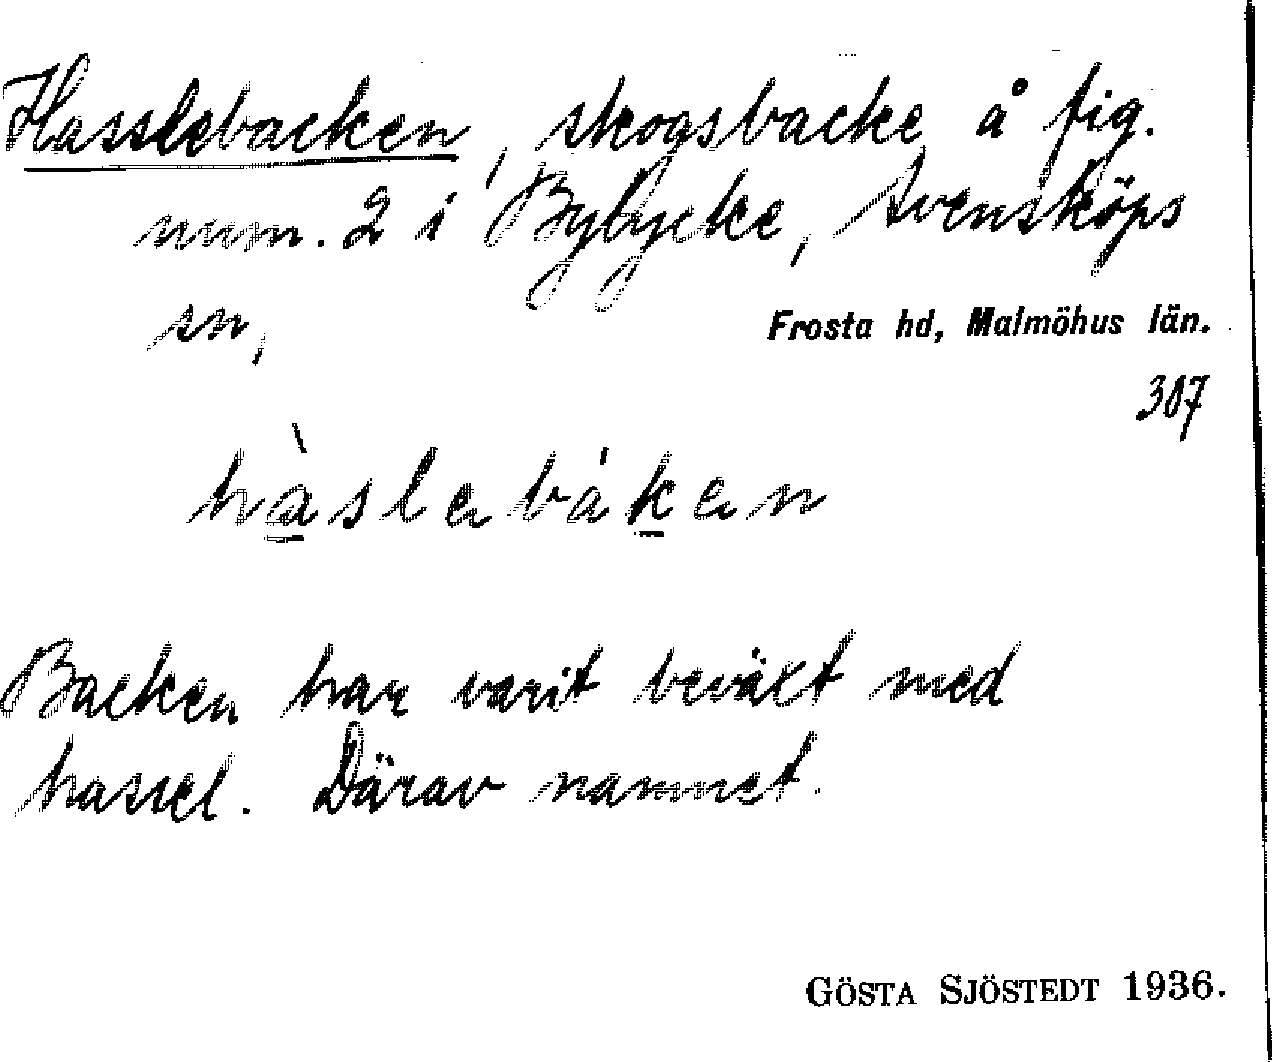 Hasslebacken, skogsbacke å fig.
num. 2 i Bybycke, Svensköps
sn,
Frosta hd, Malmöhus län.
307
hàslebáken
Backen har varit beväxt med
hassel. Därav namnet.
GÖSTA SJÖSTEDT 1936.